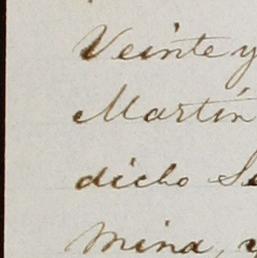 Veinte y
Martin
dicho Se
mina, y